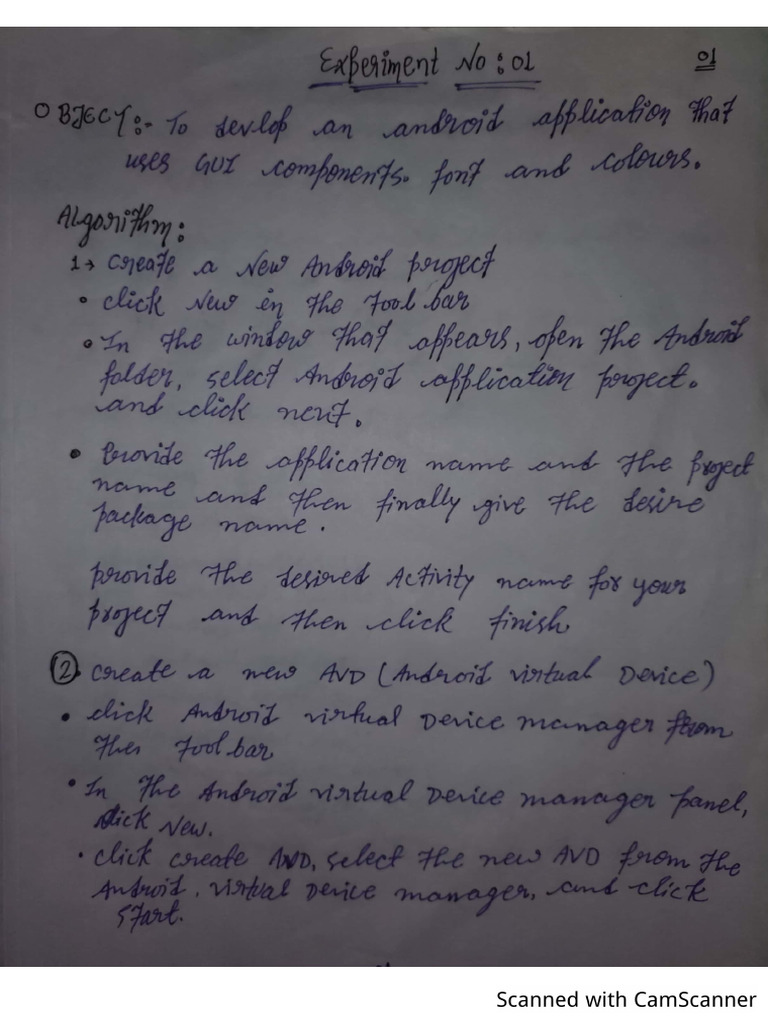 Experiment No : 01
01
OBJECT:- To devlop an android application that
uses GUI components. font and colours.
Algorithm:
1→ create a New Android project
• click New in the Tool bar
• In the window that appears, open the Android
folder, select Android application project.
and click next.
• Provide the application name and the project
name and then finally give the desire
package name.
provide the desired Activity name for your
project and then click finish
2. create a new AVD (Android virtual Device)
• click Android virtual Device manager from
the Toolbar
• In the Android virtual Device manager panel,
click New.
• click create AVD, select the new AVD from the
Android. virtual Device manager, and click
start.
Scanned with CamScanner